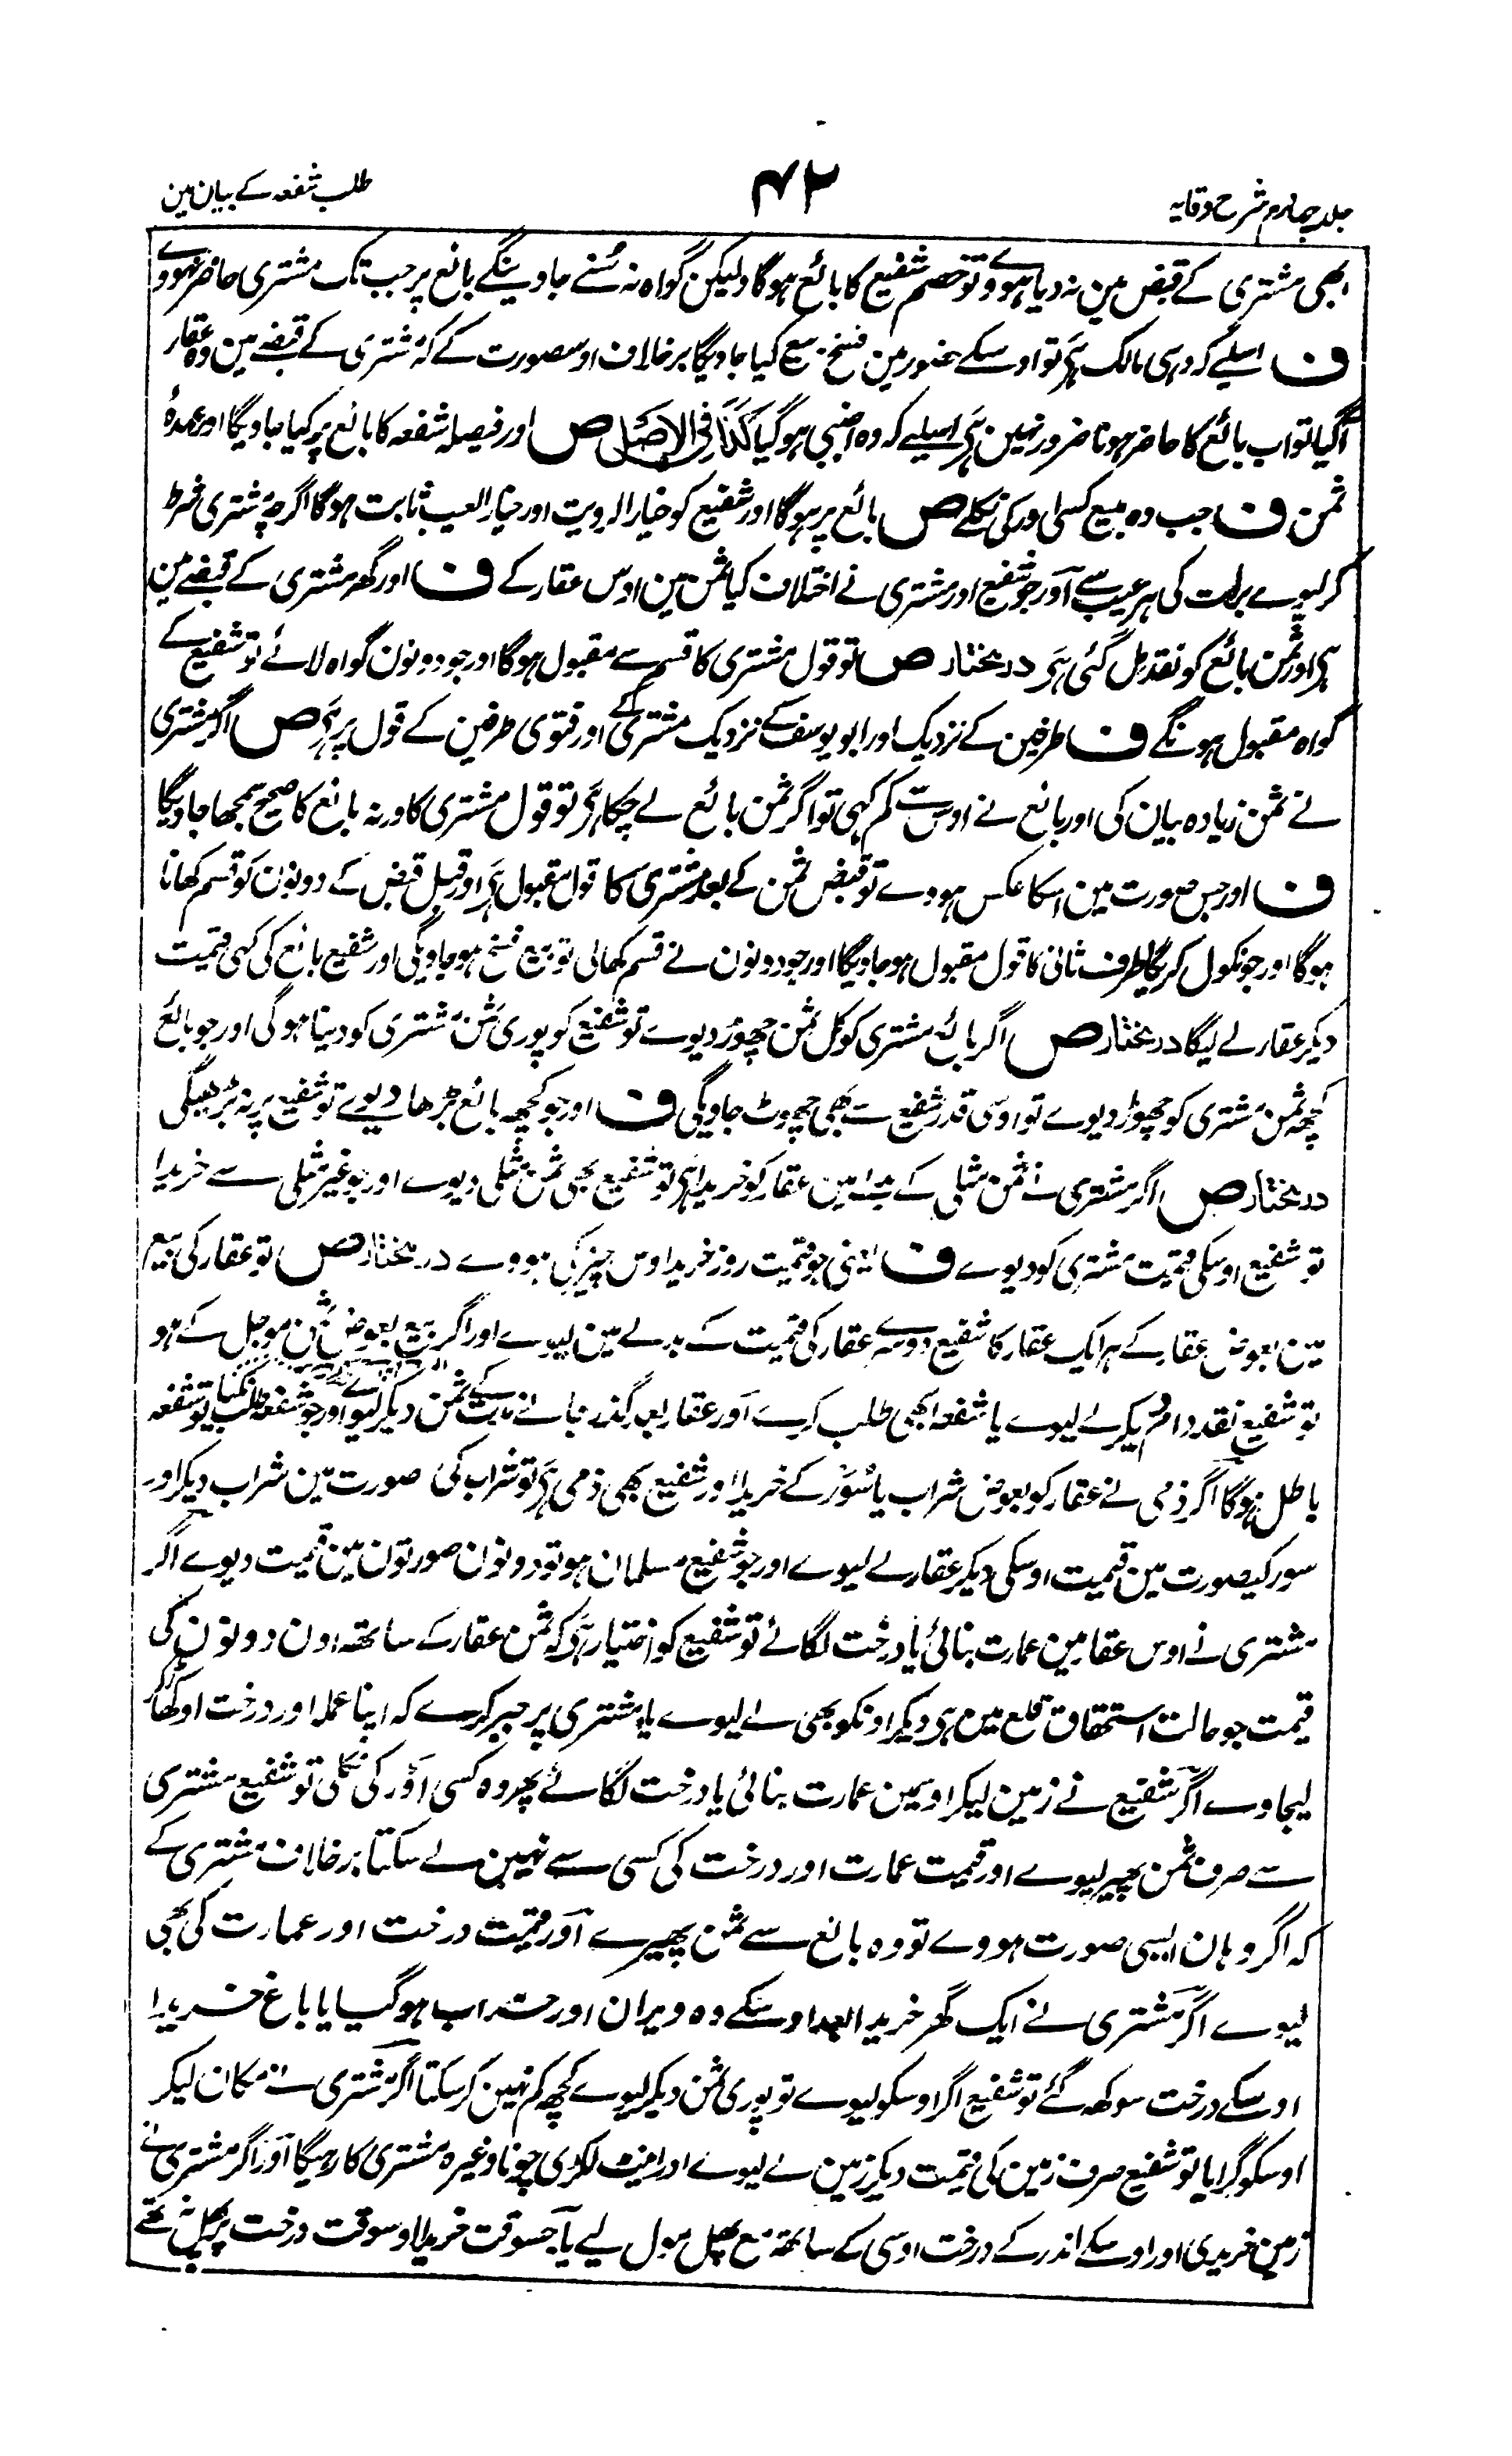 جلد چہارم شرح وقایہ
۴۲
طلب شفعہ کے بیان مین
ابھی مشتری کے قبض مین نہ دیا ہووے تو خصم شفیع کا بائع ہوگا ولیکن گواہ نہ سُنے جاوینگے بائع پر جب تک مشتری حاضر نہووے
ف اسلیے کہ وہی مالک ہی تو اوسکے حضور مین فسخ بیع کیا جاویگا برخلاف اوس صورت کے کہ مشتری کے قبضے مین وہ عقار
آگیا تو اب بائع کا حاضر ہونا ضرور نہین ہی اسلیے کہ وہ اجنبی ہوگیا کذا فی الاصل ص اور فیصلہ شفعہ کا بائع پر کیا جاویگا اور عہدہٴ
ثمن ف جب وہ مبیع کسی اور کی نکلے ص بائع پر ہوگا اور شفیع کو خیار الرویت اور خیار العیب ثابت ہوگا اگرچہ مشتری شرط
کرلیوے براءت کی ہر عیب سے اور جو شفیع اور مشتری نے اختلاف کیا ثمن مین اوس عقار کے ف اور گھر مشتری کے قبضے مین
ہی اور ثمن بائع کو نقد مل گئی ہی درمختار ص تو قول مشتری کا قسم سے مقبول ہوگا اور جو دونون گواہ لائے تو شفیع کے
گواہ مقبول ہونگے ف طرفین کے نزدیک اور ابو یوسف کے نزدیک مشتری کے اور فتوی طرفین کے قول پر ہی ص اگر مشتری
نے ثمن زیادہ بیان کی اور بائع نے اوس سے کم کہی تو اگر ثمن بائع لے چکا ہی تو قول مشتری کا ورنہ بائع کا صحیح سمجھا جاویگا
ف اور جس صورت مین اسکا عکس ہووے تو قبض ثمن کے بعد مشتری کا قول مقبول ہی اور قبل قبض کے دونون کو قسم کھانا
ہوگا اور جو نکول کریگا طرف ثانی کا قول مقبول ہو جاویگا اور جو دونون نے قسم کھالی تو بیع فسخ ہو جاویگی اور شفیع بائع کی کہی قیمت
دیکر عقار لے لیگا درمختار ص اگر بائع مشتری کو کل ثمن چھوڑ دیوے تو شفیع کو پوری ثمن مشتری کو دینا ہوگی اور جو بائع
کچھ ثمن مشتری کو چھوڑ دیوے تو اوسی قدر شفیع سے بھی چھوٹ جاویگی ف اور جو کچھ بائع بڑھا دیوے تو شفیع پر نہ بڑھیگی
درمختار ص اگر مشتری نے ثمن مثلی کے بدلے مین عقار کو خریدا ہی تو شفیع بھی ثمن مثلی دیوے اور جو غیر مثلی سے خریدا
تو شفیع اوسکی قیمت مشتری کو دیوے ف یعنی جو قیمت روز خرید اوس چیز کی ہووے درمختار ص تو عقار کی بیع
مین بعوض عقار کے ہر ایک عقار کا شفیع دوسرے عقار کی قیمت کے بدلے مین لیوے اور اگر بیع بعوض ثمن موجل کے ہو
تو شفیع نقد دام دیکر لے لیوے یا شفعہ ابھی طلب کرے اور عقار بعد گذر جانے مدت کے ثمن دیکر لیوے اور جو شفعہ طلب نکیا تو شفعہ
باطل ہوگا اگر ذمی نے عقار کو بعوض شراب یا سُوَر کے خریدا اور شفیع بھی ذمی ہی تو شراب کی صورت مین شراب دیکر اور
سور کیصورت مین قیمت اوسکی دیکر عقار لے لیوے اور جو شفیع مسلمان ہو تو دونون صورتون مین قیمت دیوے اگر
مشتری نے اوس عقار مین عمارت بنائی یا درخت لگائے تو شفیع کو اختیار ہی کہ ثمن عقار کے ساتھ اون دونون کی
قیمت جو حالت استحقاق قلع مین ہی دیکر اونکو بھی لے لیوے یا مشتری پر جبر کرے کہ اپنا عملہ اور درخت اوکھاڑ کر
لیجاوے اگر شفیع نے زمین لیکر اوسمین عمارت بنائی یا درخت لگائے پھر وہ کسی اَور کی نکلی تو شفیع مشتری
سے صرف ثمن پھیر لیوے اور قیمت عمارت اور درخت کی کسی سے نہین لے سکتا برخلاف مشتری کے
کہ اگر وہان ایسی صورت ہووے تو وہ بائع سے ثمن پھیرے اور قیمت درخت اور عمارت کی بھی
لیوے اگر مشتری نے ایک گھر خریدا بعد اوسکے وہ ویران اور خراب ہوگیا یا باغ خریدا
اوسکے درخت سوکھ گئے تو شفیع اگر اوسکو لیوے تو پوری ثمن دیکر لیوے کچھ کم نہین کر سکتا اگر مشتری نے مکان لیکر
اوسکو گرایا تو شفیع صرف زمین کی قیمت دیکر زمین لے لیوے اور اینٹ لکڑی چونا وغیرہ مشتری کا رہیگا اور اگر مشتری نے
زمین خریدی اور اوسکے اندر کے درخت اوسی کے ساتھ مع پھل مول لیے یا جسوقت خریدا اوسوقت درخت پر پھل نہ تھے